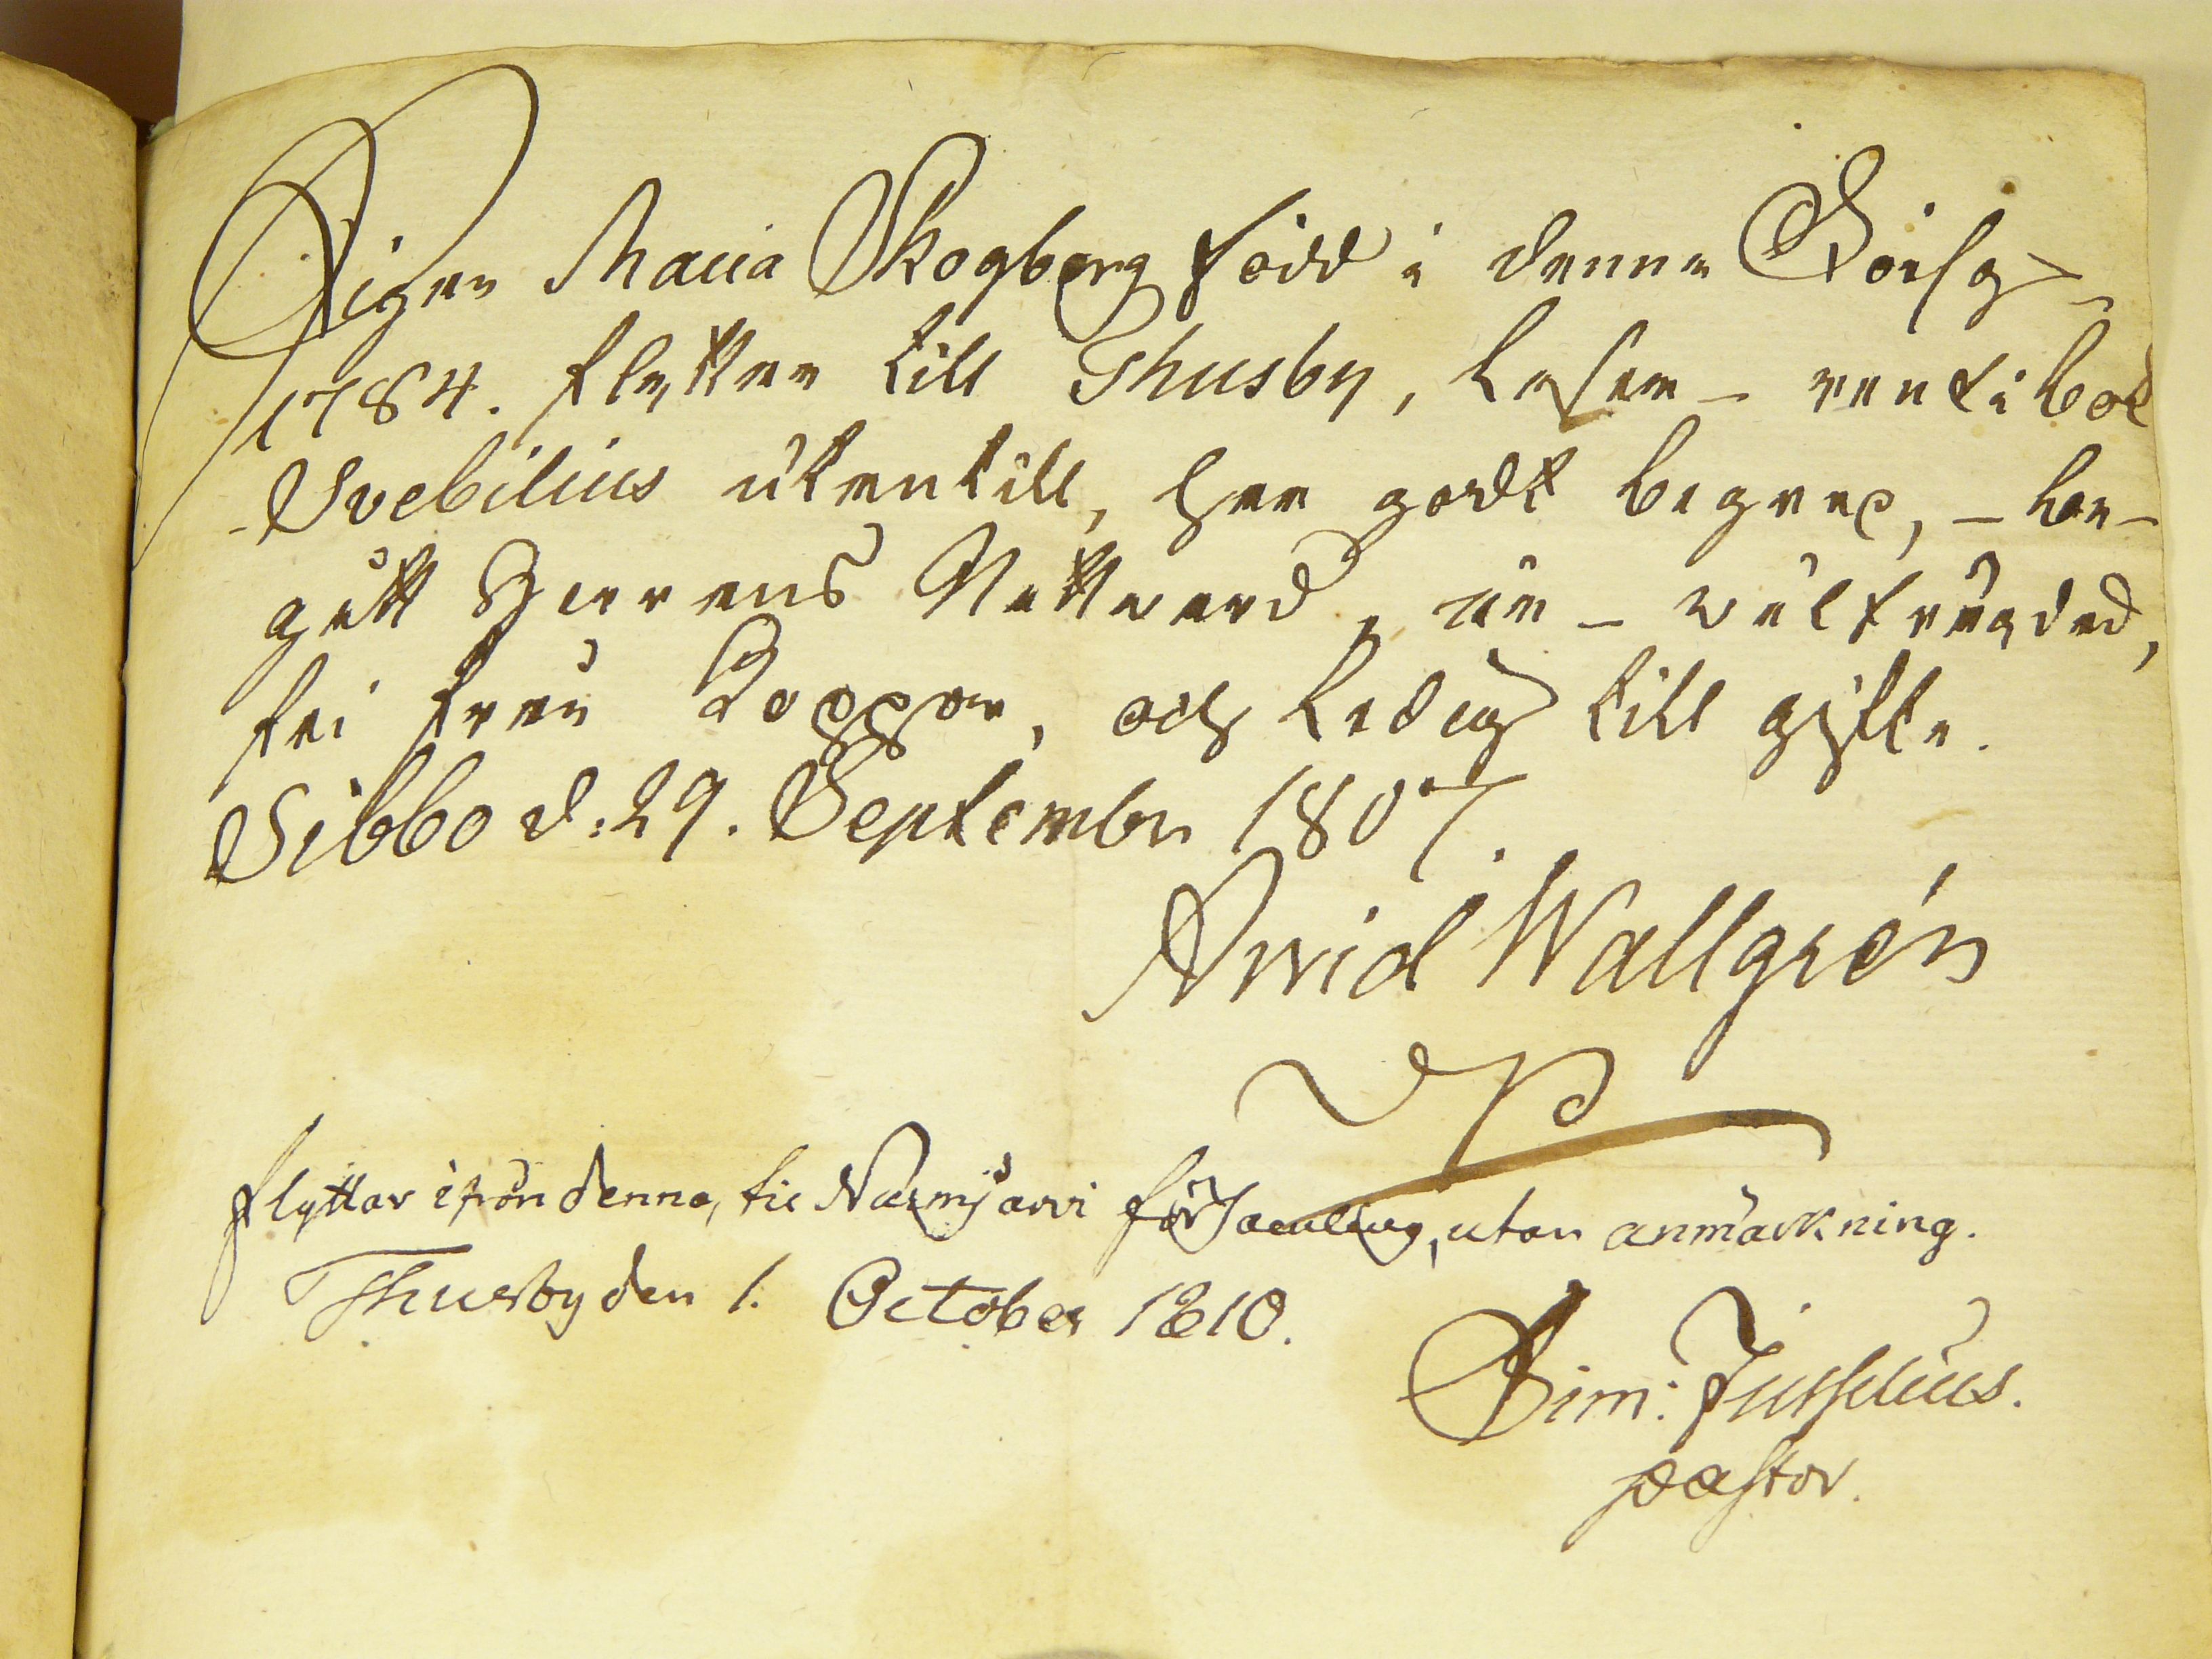 Pigan Maria Skogberg född i denna Förs:g
1784. flyttar till Thusby, läser rent i bok
Svebilius utantill, har godt begrep, be-
gått Herrens Nattvard, är wälfrägdad,
fri från koppor, och ledig till gifte.
Sibbo d: 29. September 1807.
Arvid Wallgrén
VP
flyttar ifrån denna, til Nurmijärvi församling, utan anmärkning.
Thusby den 1. October 1810.
Sim: Juselius.
pastor.